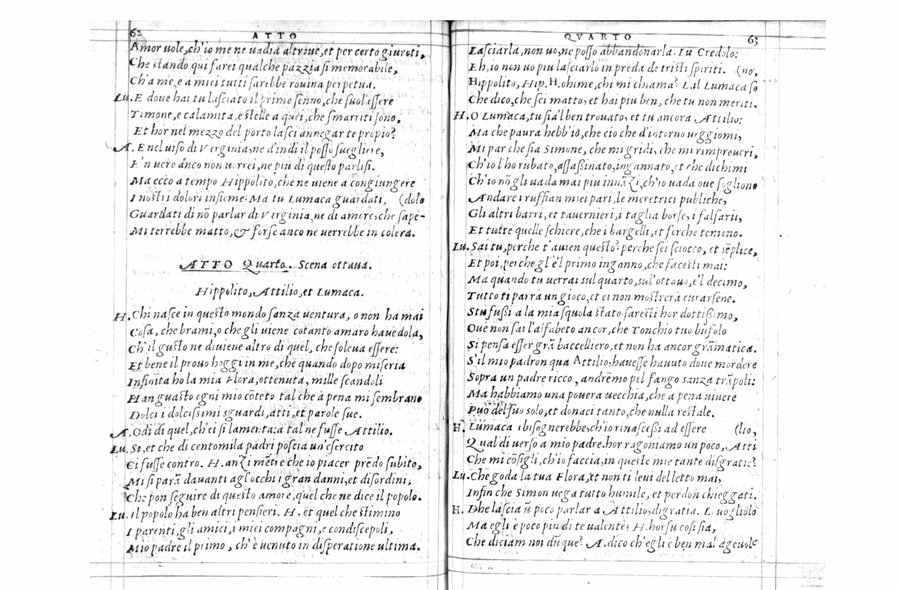 62 ATTO
Amor vole, ch'io me ne vadia altrive, et per certo giuroti,
Che stando qui farei qualche pazzia si memorabile,
Ch'a me, e a miei tutti sarebbe rovina perpetua.
Lu. E dove hai tu lasciato il primo senno, che suol'essere
Timone, e calamita, e stelle a quei, che smarriti sono,
Et hor nel mezzo del porto lasci annegar te propio?
A. E nel viso di Verginia, ne d'indi il posso svegliere,
E'n vero anco non vorrei, ne piu di questo parlisi.
Ma ecco a tempo Hippolito, che ne viene a congiungere
I nostri dolori insieme: Ma tu Lumaca guardati, (dolo
Guardati di nō parlar di Verginia, ne di amore, che sapē-
Mi terrebbe matto, & forse anco ne verrebbe in colera.
ATTO Quarto. Scena ottava.
Hippolito, Attilio, et Lumaca.
H. Chi nasce in questo mondo sanza ventura, o non ha mai
Cosa, che brami, o che gli viene cotanto amaro havedola,
Ch'il gusto ne diviene altro di quel, che soleva essere:
Et bene il provo hoggi in me, che quando dopo miseria
Infinita ho la mia Flora, ottenuta, mille scandoli
Hanguasto ogni mio cōteto tal che a pena mi sembrano
Dolci i dolcissimi sguardi, atti, et parole sue.
A. Odi di quel, ch'ei si lamenta: a tal ne fusse Attilio.
Lu. Si, et che di centomila padri poscia un'esercito
Ci fusse contro. H. anzi mētre che io piacer prēdo subito,
Mi si parā davanti agl'occhi i gran danni, et disordini,
Che pon seguire di questo amore, quel che ne dice il popolo.
Lu. Il popolo ha ben altri pensieri. H. et quel che stimino
I parenti, gli amici, i miei compagni, e condiscepoli,
Mio padre il primo, ch'è venuto in disperatione ultima.
QVARTO 63
Lasciarla, non vo, ne posso abbandonarla. Lu Credolo:
Eh, io non vo piu lasciarlo in preda de tristi spiriti. (no,
Hippolito, Hip. H. ohime, chi mi chiama? L. il Lumaca so
Che dico, che sei matto, et hai piu ben, che tu non meriti.
H. O Lumaca, tu sia'l ben trovato, et tu ancora Attilio:
Ma che paura hebb'iò, che cio che d'intorno veggiomi,
Mi par che sia Simone, che mi gridi, che mi rimproveri,
Ch'io l'ho rubato, assassinato, ingannato, et che dichimi
Ch'io nō gli vada mai piu innāzi, ch'io vada ove sogliono
Andare i ruffian miei pari, le meretrici publiche,
Gli altri barri, et tavernieri, i taglia borse, i falsarii,
Et tutte quelle schiere, che i bargelli, et forche temeno.
Lu. Sai tu, perche t'avien questo? perche sei sciocco, et sēplice,
Et poi, perche gl'è'l primo inganno, che facesti mai:
Ma quando tu verrai sul quarto, sul'ottavo, e'l decimo,
Tutto ti parra un gioco, et ei non mostrerà curarsene.
Stu fussi a la mia squola stato saresti hor dottissimo,
Ove non sai l'alfabeto ancor, che Tonchio tuo bifolo
Si pensa esser grā baccelliero, et non ha ancor grāmatica.
S'il mio padron qua Attilio, havesse havuto dove mordere
Sopra un padre ricco, andrēmo pel fango sanza trāpoli:
Ma habbiamo una povera vecchia, che a pena vivere
Può del suo solo, et donaci tanto, che nulla restale.
H. Lumaca i bisognerebbe, ch'io rinascessi ad essere (lio,
Qual di verso a mio padre. hor ragoniamo un poco, Atti
Che mi cōsigli, ch'io faccia, in queste mie tante disgratie?
Lu. Che goda la tua Flora, et non ti levi del letto mai,
Infin che Simon vega tutto humile, et perdon chieggati.
H. Dhe lascia ū poco parlar a Attilio, di gratia. L. vogliolo
Ma egli è poco piu di te valente: H. hor su cosi sia,
Che diciam noi dūque? A. dico ch'egli è ben mal'agevole